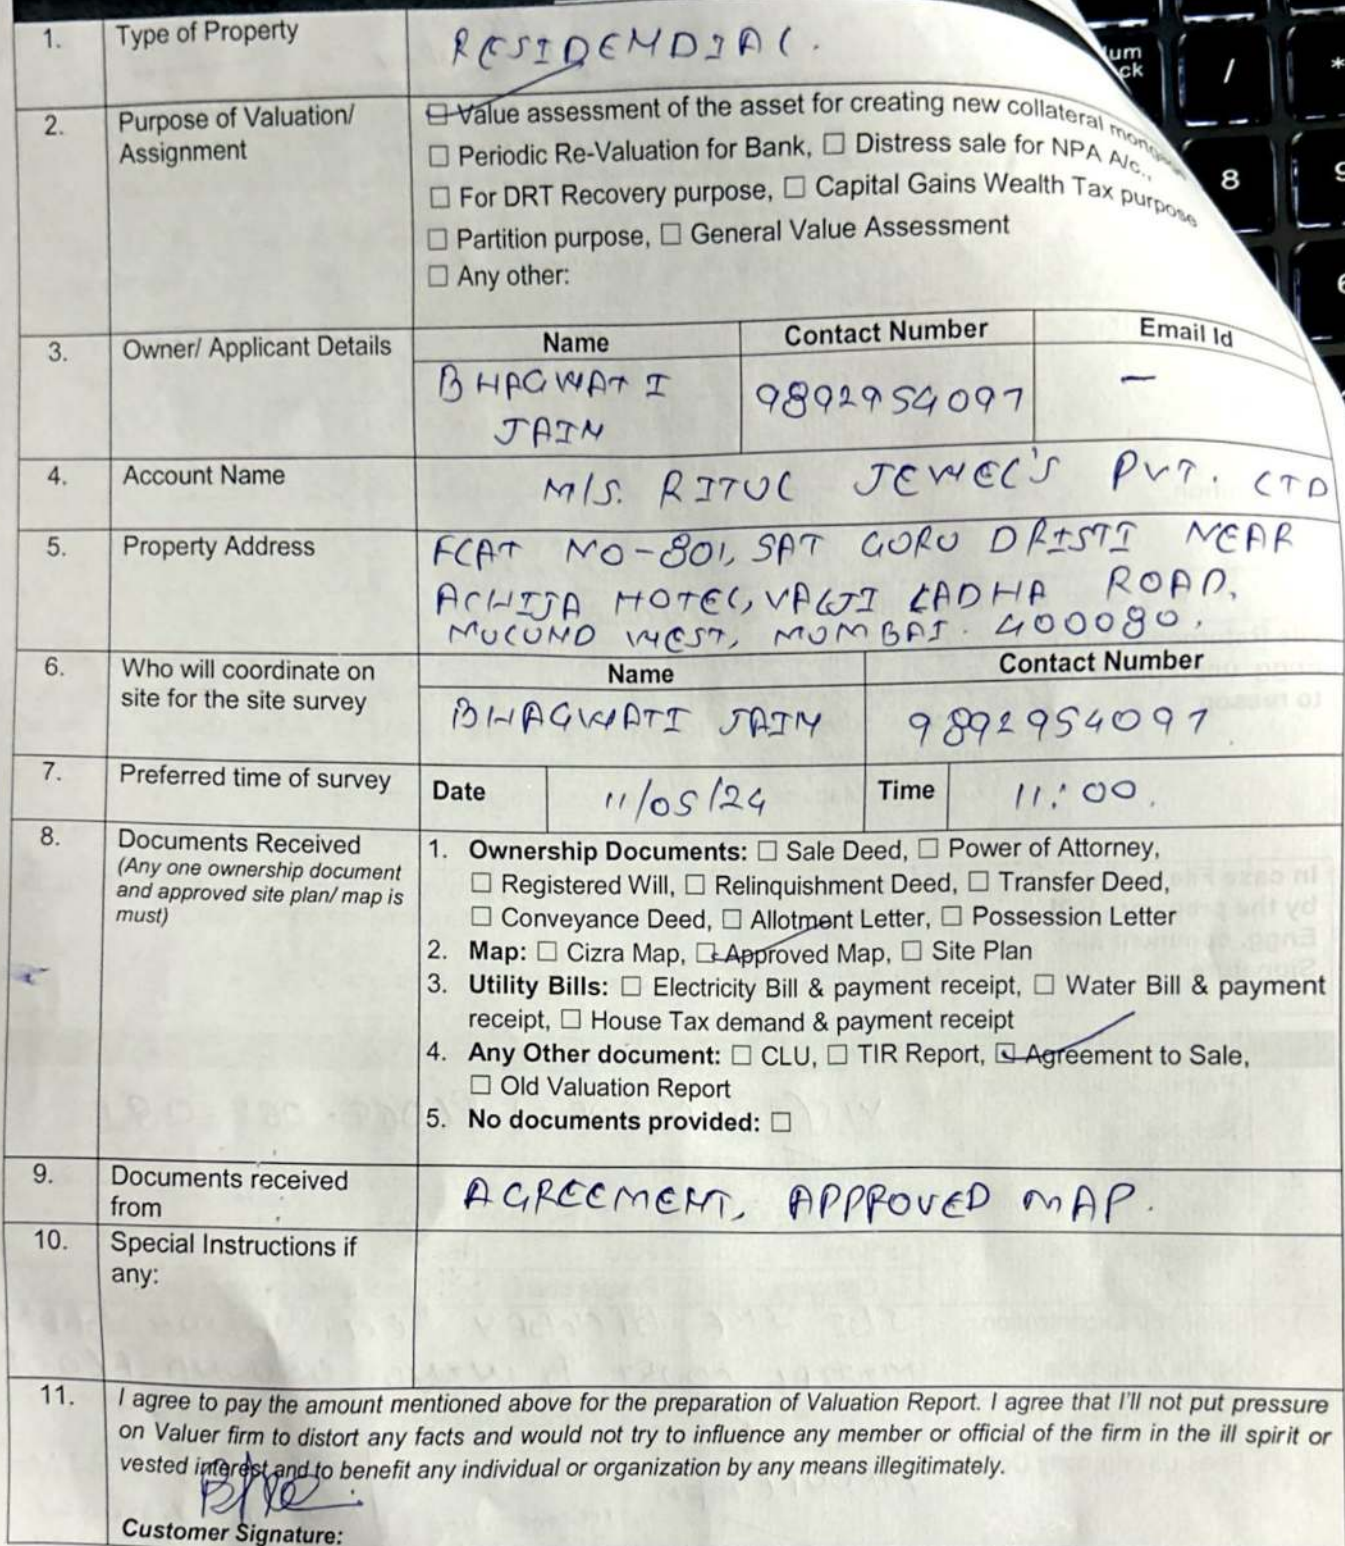 1. Type of Property RESIDENDIAL.
2. Purpose of Valuation/ Assignment
☑ Value assessment of the asset for creating new collateral
☐ Periodic Re-Valuation for Bank, ☐ Distress sale for NPA A/c.,
☐ For DRT Recovery purpose, ☐ Capital Gains Wealth Tax purpose
☐ Partition purpose, ☐ General Value Assessment
☐ Any other:
3. Owner/ Applicant Details
Name Contact Number Email Id
BHAGWATI 9892954097 —
JAIN
4. Account Name M/S. RITUL JEWEL'S PVT. LTD
5. Property Address FLAT NO-801, SAT GURU DRISTI NEAR
ACHIJA HOTEL, VALJI LADHA ROAD,
MULUND WEST, MUMBAI. 400080.
6. Who will coordinate on
site for the site survey
Name Contact Number
BHAGWATI JAIN 9892954097
7. Preferred time of survey Date 11/05/24 Time 11:00.
8. Documents Received
(Any one ownership document
and approved site plan/ map is
must)
1. Ownership Documents: ☐ Sale Deed, ☐ Power of Attorney,
☐ Registered Will, ☐ Relinquishment Deed, ☐ Transfer Deed,
☐ Conveyance Deed, ☐ Allotment Letter, ☐ Possession Letter
2. Map: ☐ Cizra Map, ☑ Approved Map, ☐ Site Plan
3. Utility Bills: ☐ Electricity Bill & payment receipt, ☐ Water Bill & payment
receipt, ☐ House Tax demand & payment receipt
4. Any Other document: ☐ CLU, ☐ TIR Report, ☑ Agreement to Sale,
☐ Old Valuation Report
5. No documents provided: ☐
9. Documents received
from
AGREEMENT, APPROVED MAP.
10. Special Instructions if
any:
11. I agree to pay the amount mentioned above for the preparation of Valuation Report. I agree that I'll not put pressure
on Valuer firm to distort any facts and would not try to influence any member or official of the firm in the ill spirit or
vested interest and to benefit any individual or organization by any means illegitimately.
Customer Signature:
um
ck
/
*
8
9
6